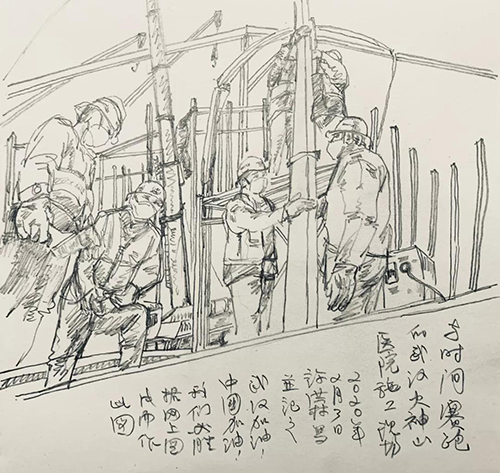 与时间赛跑
的武汉火神山
医院施工现场
2020年
2月3日
许 写
並记之
武汉加油，
中国加油，
我们必胜
网上图
片而作
此图